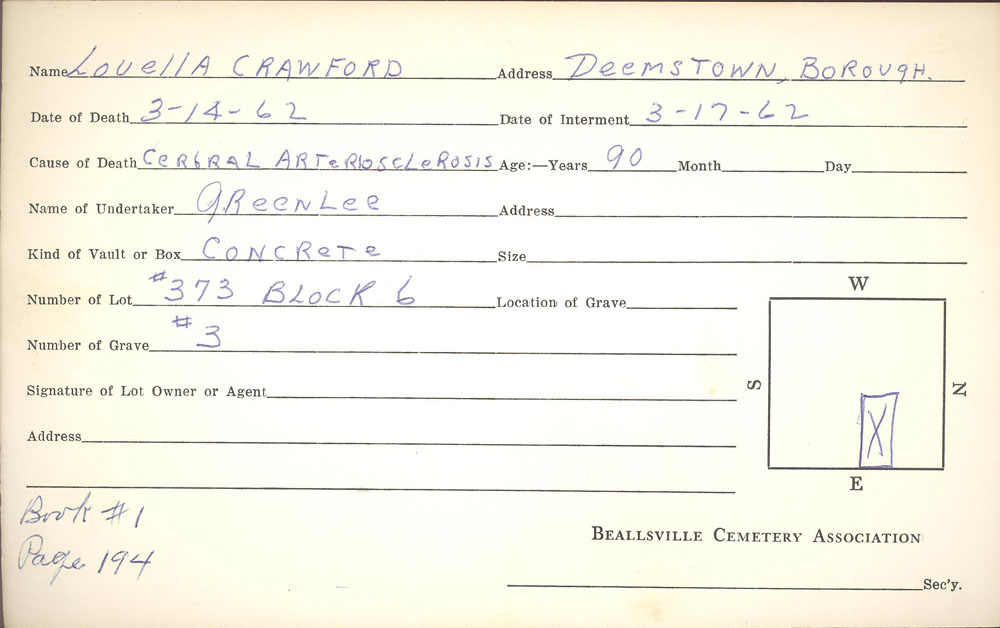 Name Louella CRAWFORD Address DeemsTOWN, BOROUgH.
Date of Death 3-14-62 Date of Interment 3-17-62
Cause of Death CeRbRAL ARTeRIOscLeROsIS Age:—Years 90 Month Day
Name of Undertaker GReenLee Address
Kind of Vault or Box CONCReTe Size
Number of Lot #373 BLOCK 6 Location of Grave
W
Number of Grave #3
S N
Signature of Lot Owner or Agent
Address
E
Book #1
BEALLSVILLE CEMETERY ASSOCIATION
Page 194
Sec'y.